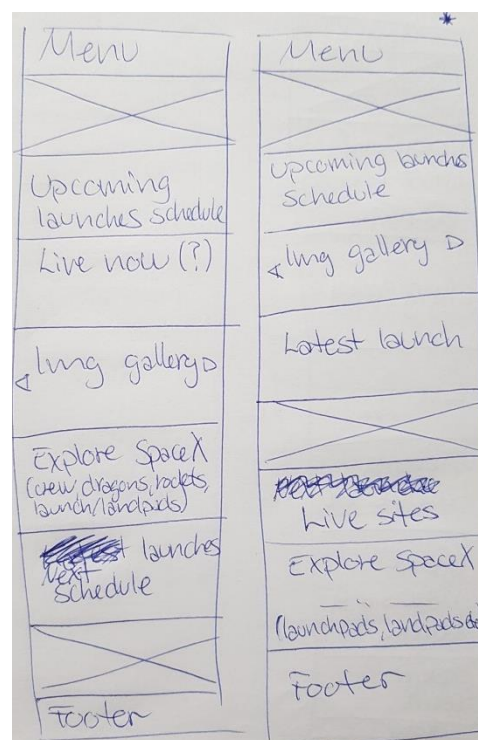 Menu
Upcoming
launches schedule
Live now (?)
Img gallery
Explore SpaceX
(crew dragons, rockets,
launch/landpads)
launches
Next
schedule
Footer
Menu
Upcoming launches
schedule
Img gallery
Latest launch
Live sites
Explore SpaceX
(launchpads, landpads
Footer